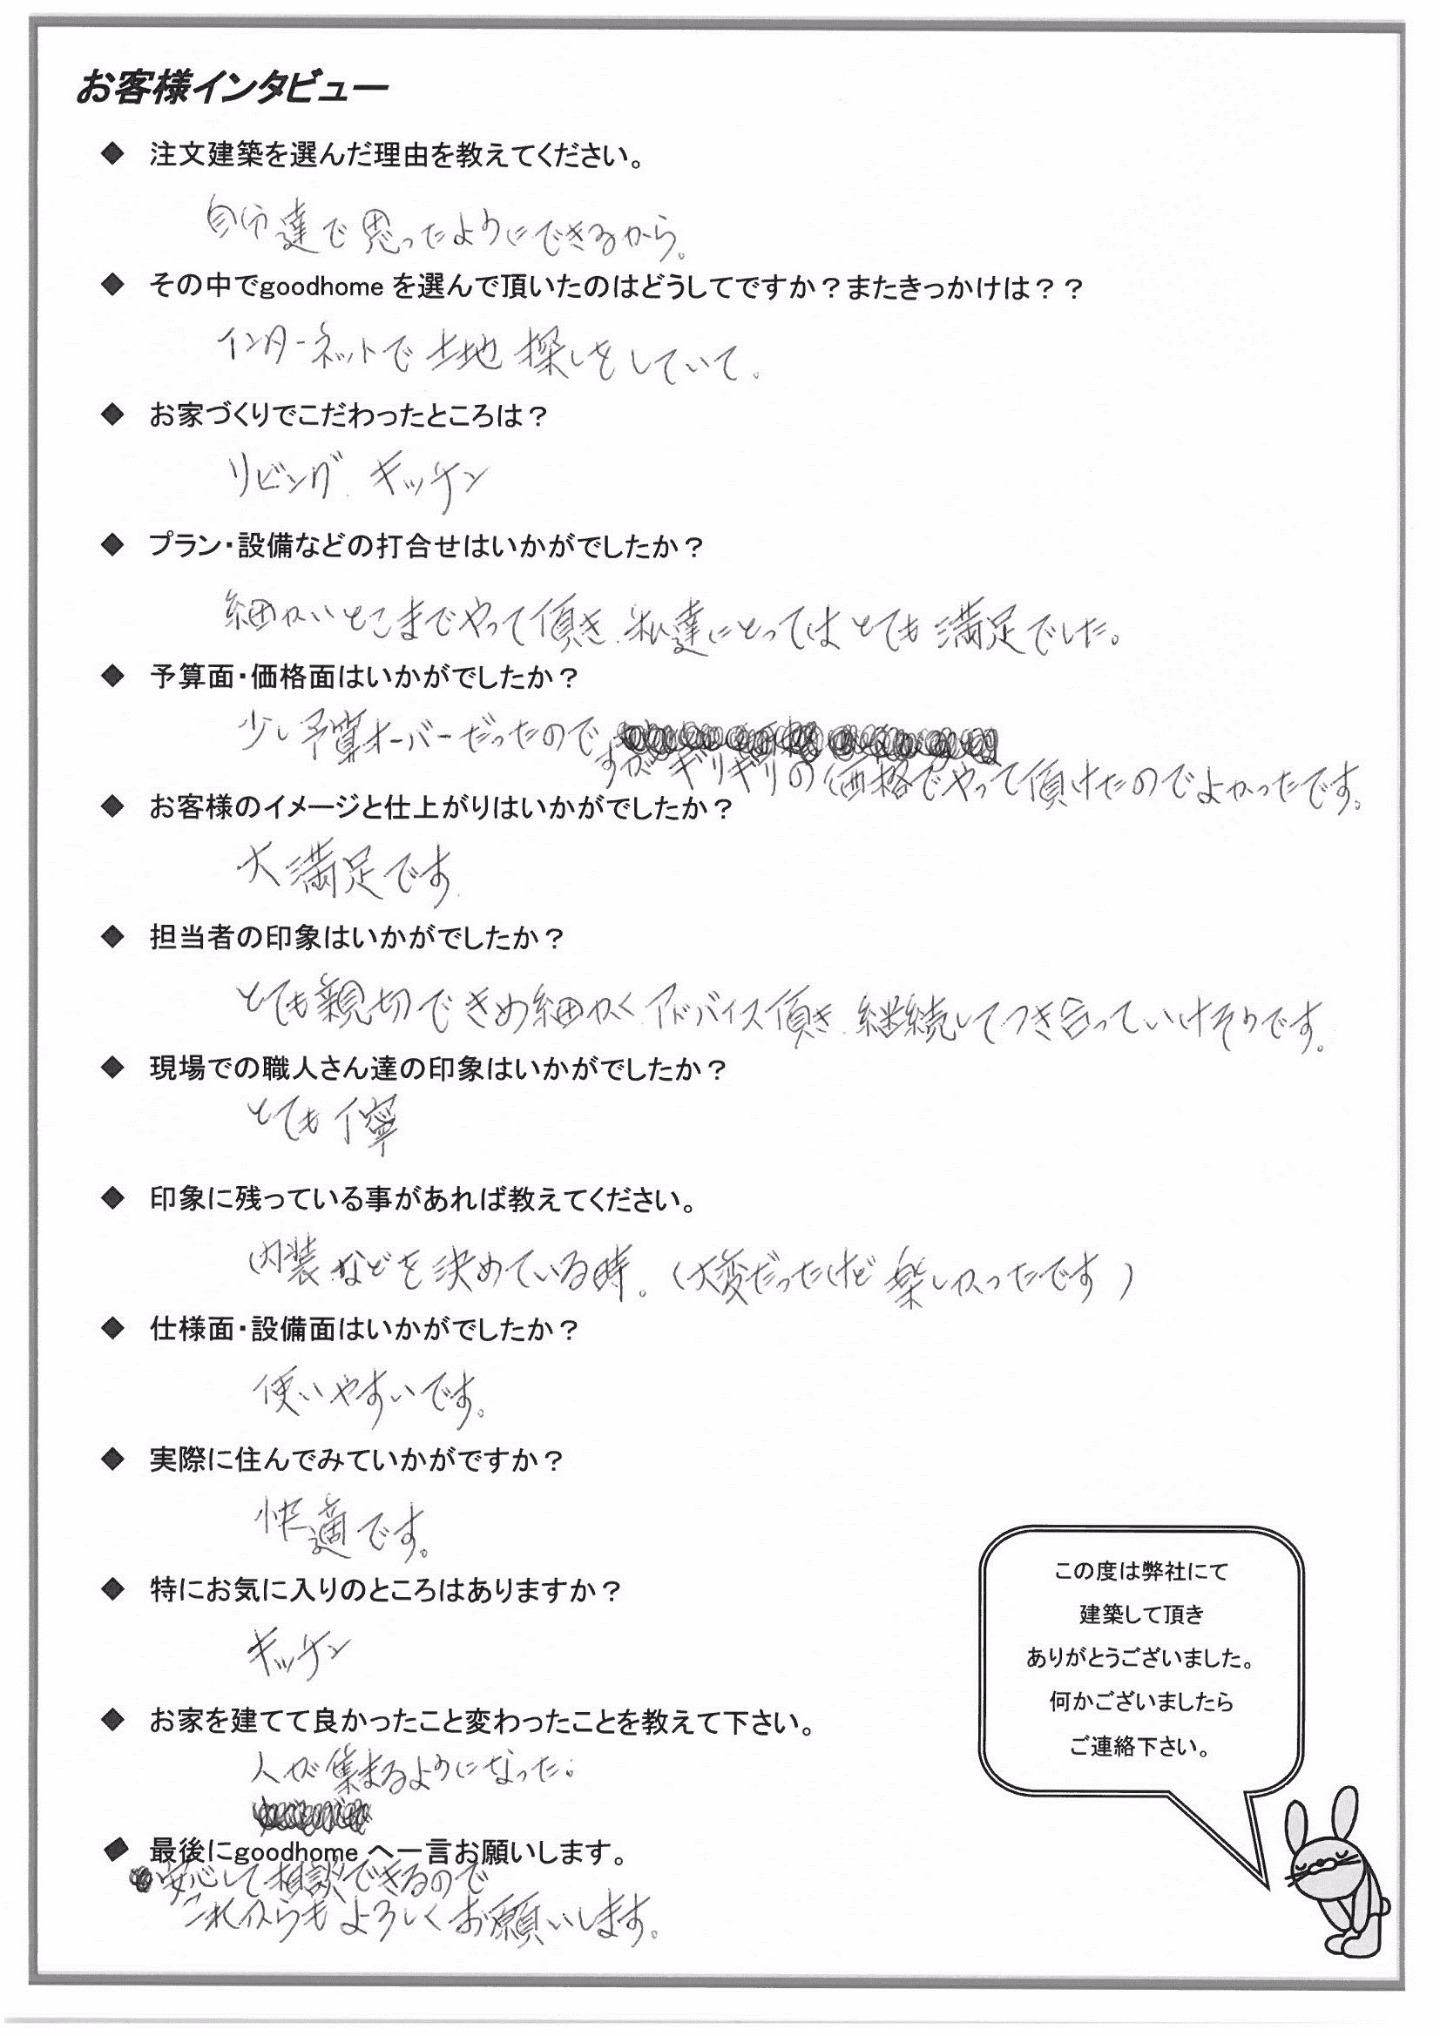 お客様インタビュー
◆ 注文建築を選んだ理由を教えてください。
自分達で思ったようにできるから。
◆ その中でgoodhomeを選んで頂いたのはどうしてですか？またきっかけは？？
インターネットで土地探しをしていて。
◆ お家づくりでこだわったところは？
リビング、キッチン
◆ プラン・設備などの打合せはいかがでしたか？
細かいとこまでやって頂き、私達にとってはとても満足でした。
◆ 予算面・価格面はいかがでしたか？
少し予算オーバーだったので
すが ギリギリの価格でやって頂けたのでよかったです。
◆ お客様のイメージと仕上がりはいかがでしたか？
大満足です
◆ 担当者の印象はいかがでしたか？
とても親切できめ細かくアドバイス頂き、継続してつき合っていけそうです。
◆ 現場での職人さん達の印象はいかがでしたか？
とても丁寧
◆ 印象に残っている事があれば教えてください。
内装などを決めている時。（大変だったけど楽しかったです）
◆ 仕様面・設備面はいかがでしたか？
使いやすいです。
◆ 実際に住んでみていかがですか？
快適です。
◆ 特にお気に入りのところはありますか？
キッチン
◆ お家を建てて良かったこと変わったことを教えて下さい。
人が集まるようになった。
◆ 最後にgoodhomeへ一言お願いします。
安心して相談できるので
これからもよろしくお願いします。
この度は弊社にて
建築して頂き
ありがとうございました。
何かございましたら
ご連絡下さい。